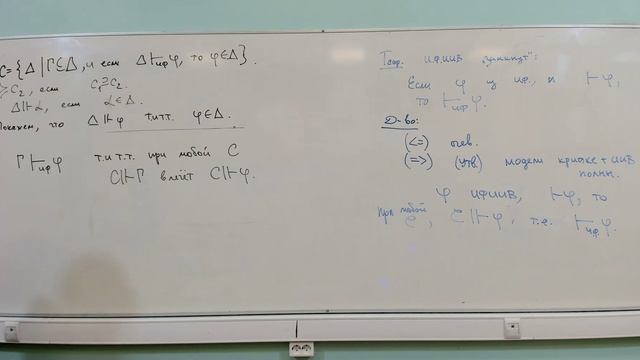 C = {Δ | Γ ⊆ Δ, и если Δ ⊢иф φ, то φ ∈ Δ}.
C₂, если C₁ ⊇ C₂.
Δ ⊩ α, если α ∈ Δ.
Покажем, что Δ ⊩ φ т.и т.т. φ ∈ Δ.
Γ ⊢иф φ т.и т.т. при любой C
C ⊩ Γ влечёт C ⊩ φ.
Теор. ИФИИВ
Если φ из иф., и ⊢ φ,
то ⊢иф φ.
Д-во:
(<=) очев.
(=>) (Утв) модели крипке + ИИВ
полны.
φ ИФИИВ, ⊢ φ, то
При любой C, C ⊩ φ, т.е. ⊢иф φ.